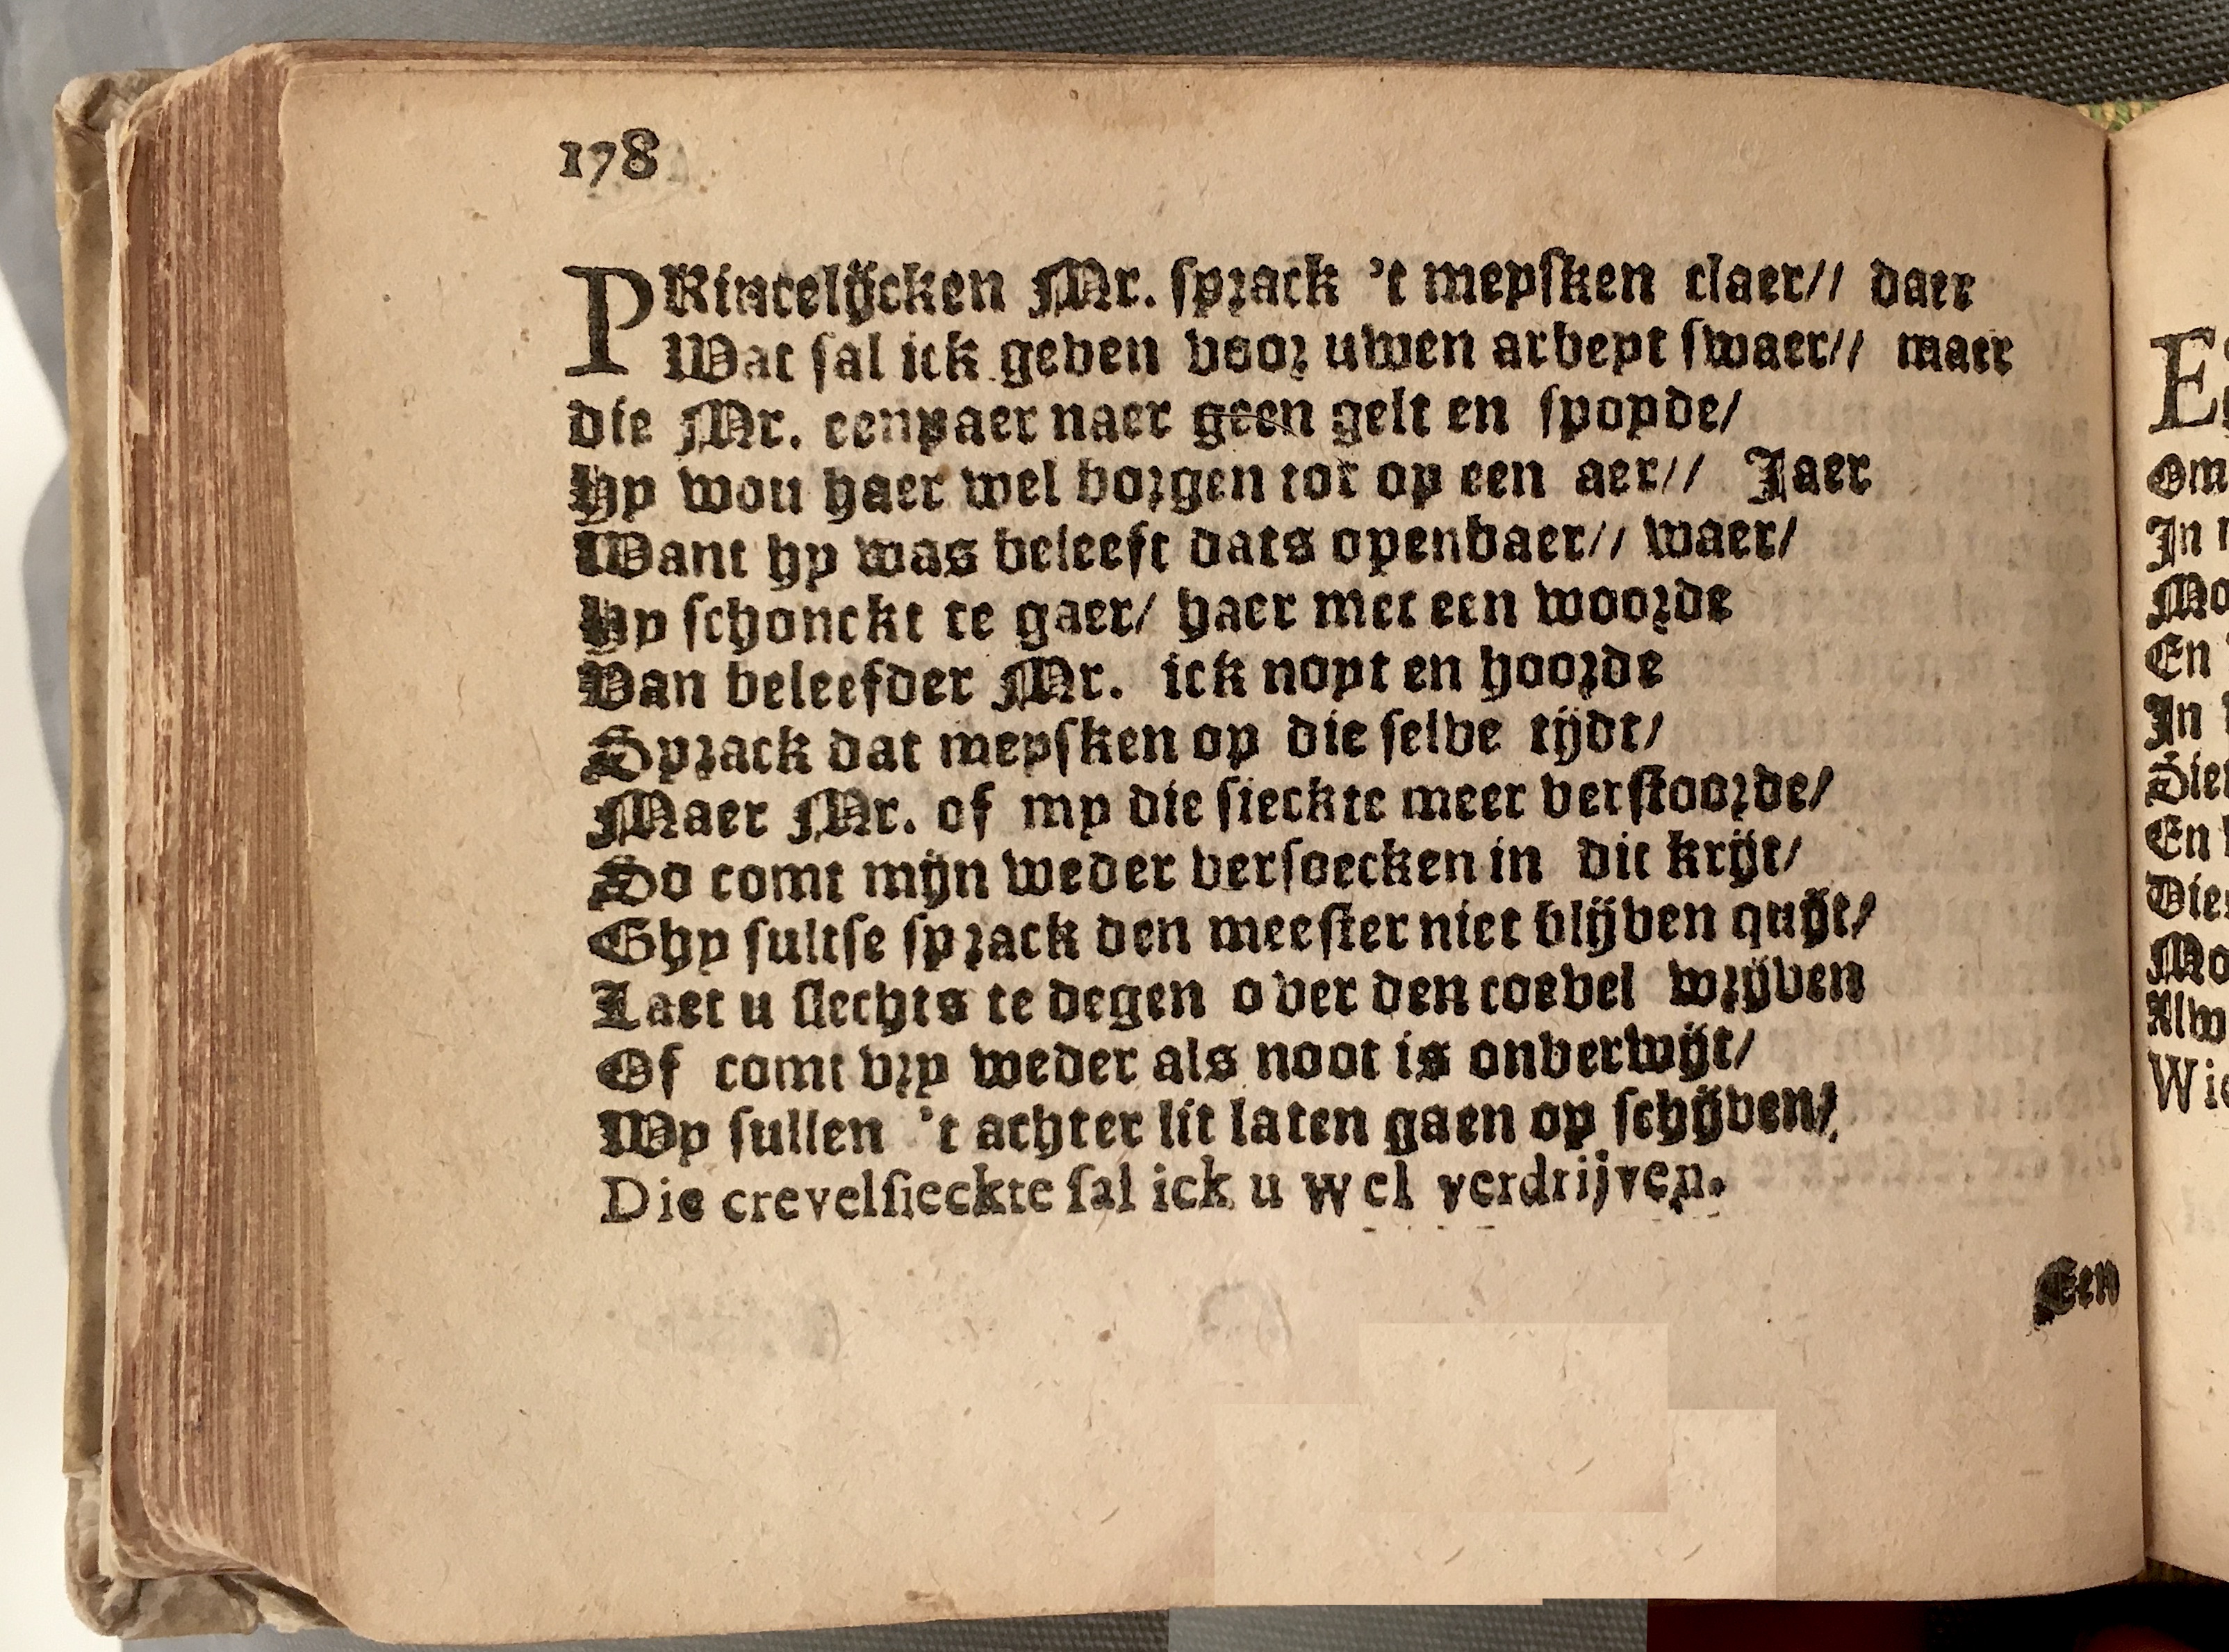 178
PRincelijcken Mr. sprack 't meysken claer// daer
Wat sal ick geven voor uwen arbeyt swaer// maer
die Mr. eenpaer naer geen gelt en spoyde/
Hy wou haer wel borgen tot op een aer// Jaer
Want hy was beleeft dats openbaer// waer/
Hy schonckt te gaer/ haer met een woorde
Van beleefder Mr. ick noyt en hoorde
Sprack dat meysken op die selve tijdt/
Maer Mr. of my die sieckte meer verstoorde/
So comt mijn weder versoecken in dit krijt/
Ghy sultse sprack den meester niet blijven quijt/
Laet u slechts te degen over den coevel wrijven
Of comt vry weder als noot is onverwijt/
Wy sullen 't achter lit laten gaen op schijven/
Die crevelsieckte sal ick u wel verdrijven.
Een
E
Om
In
Mo
En
In
Sie
En
Die
Mo
Alw
Wi